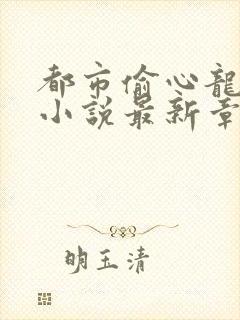 都市偷心龍
小說最新章
明玉清